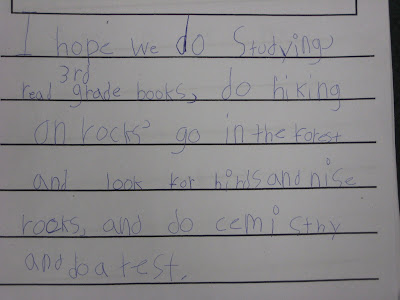 I hope we do Studying,
read 3rd grade books, do hiking
on rocks, go in the forest
and look for birds and nise
rocks, and do cemistry
and do a test.